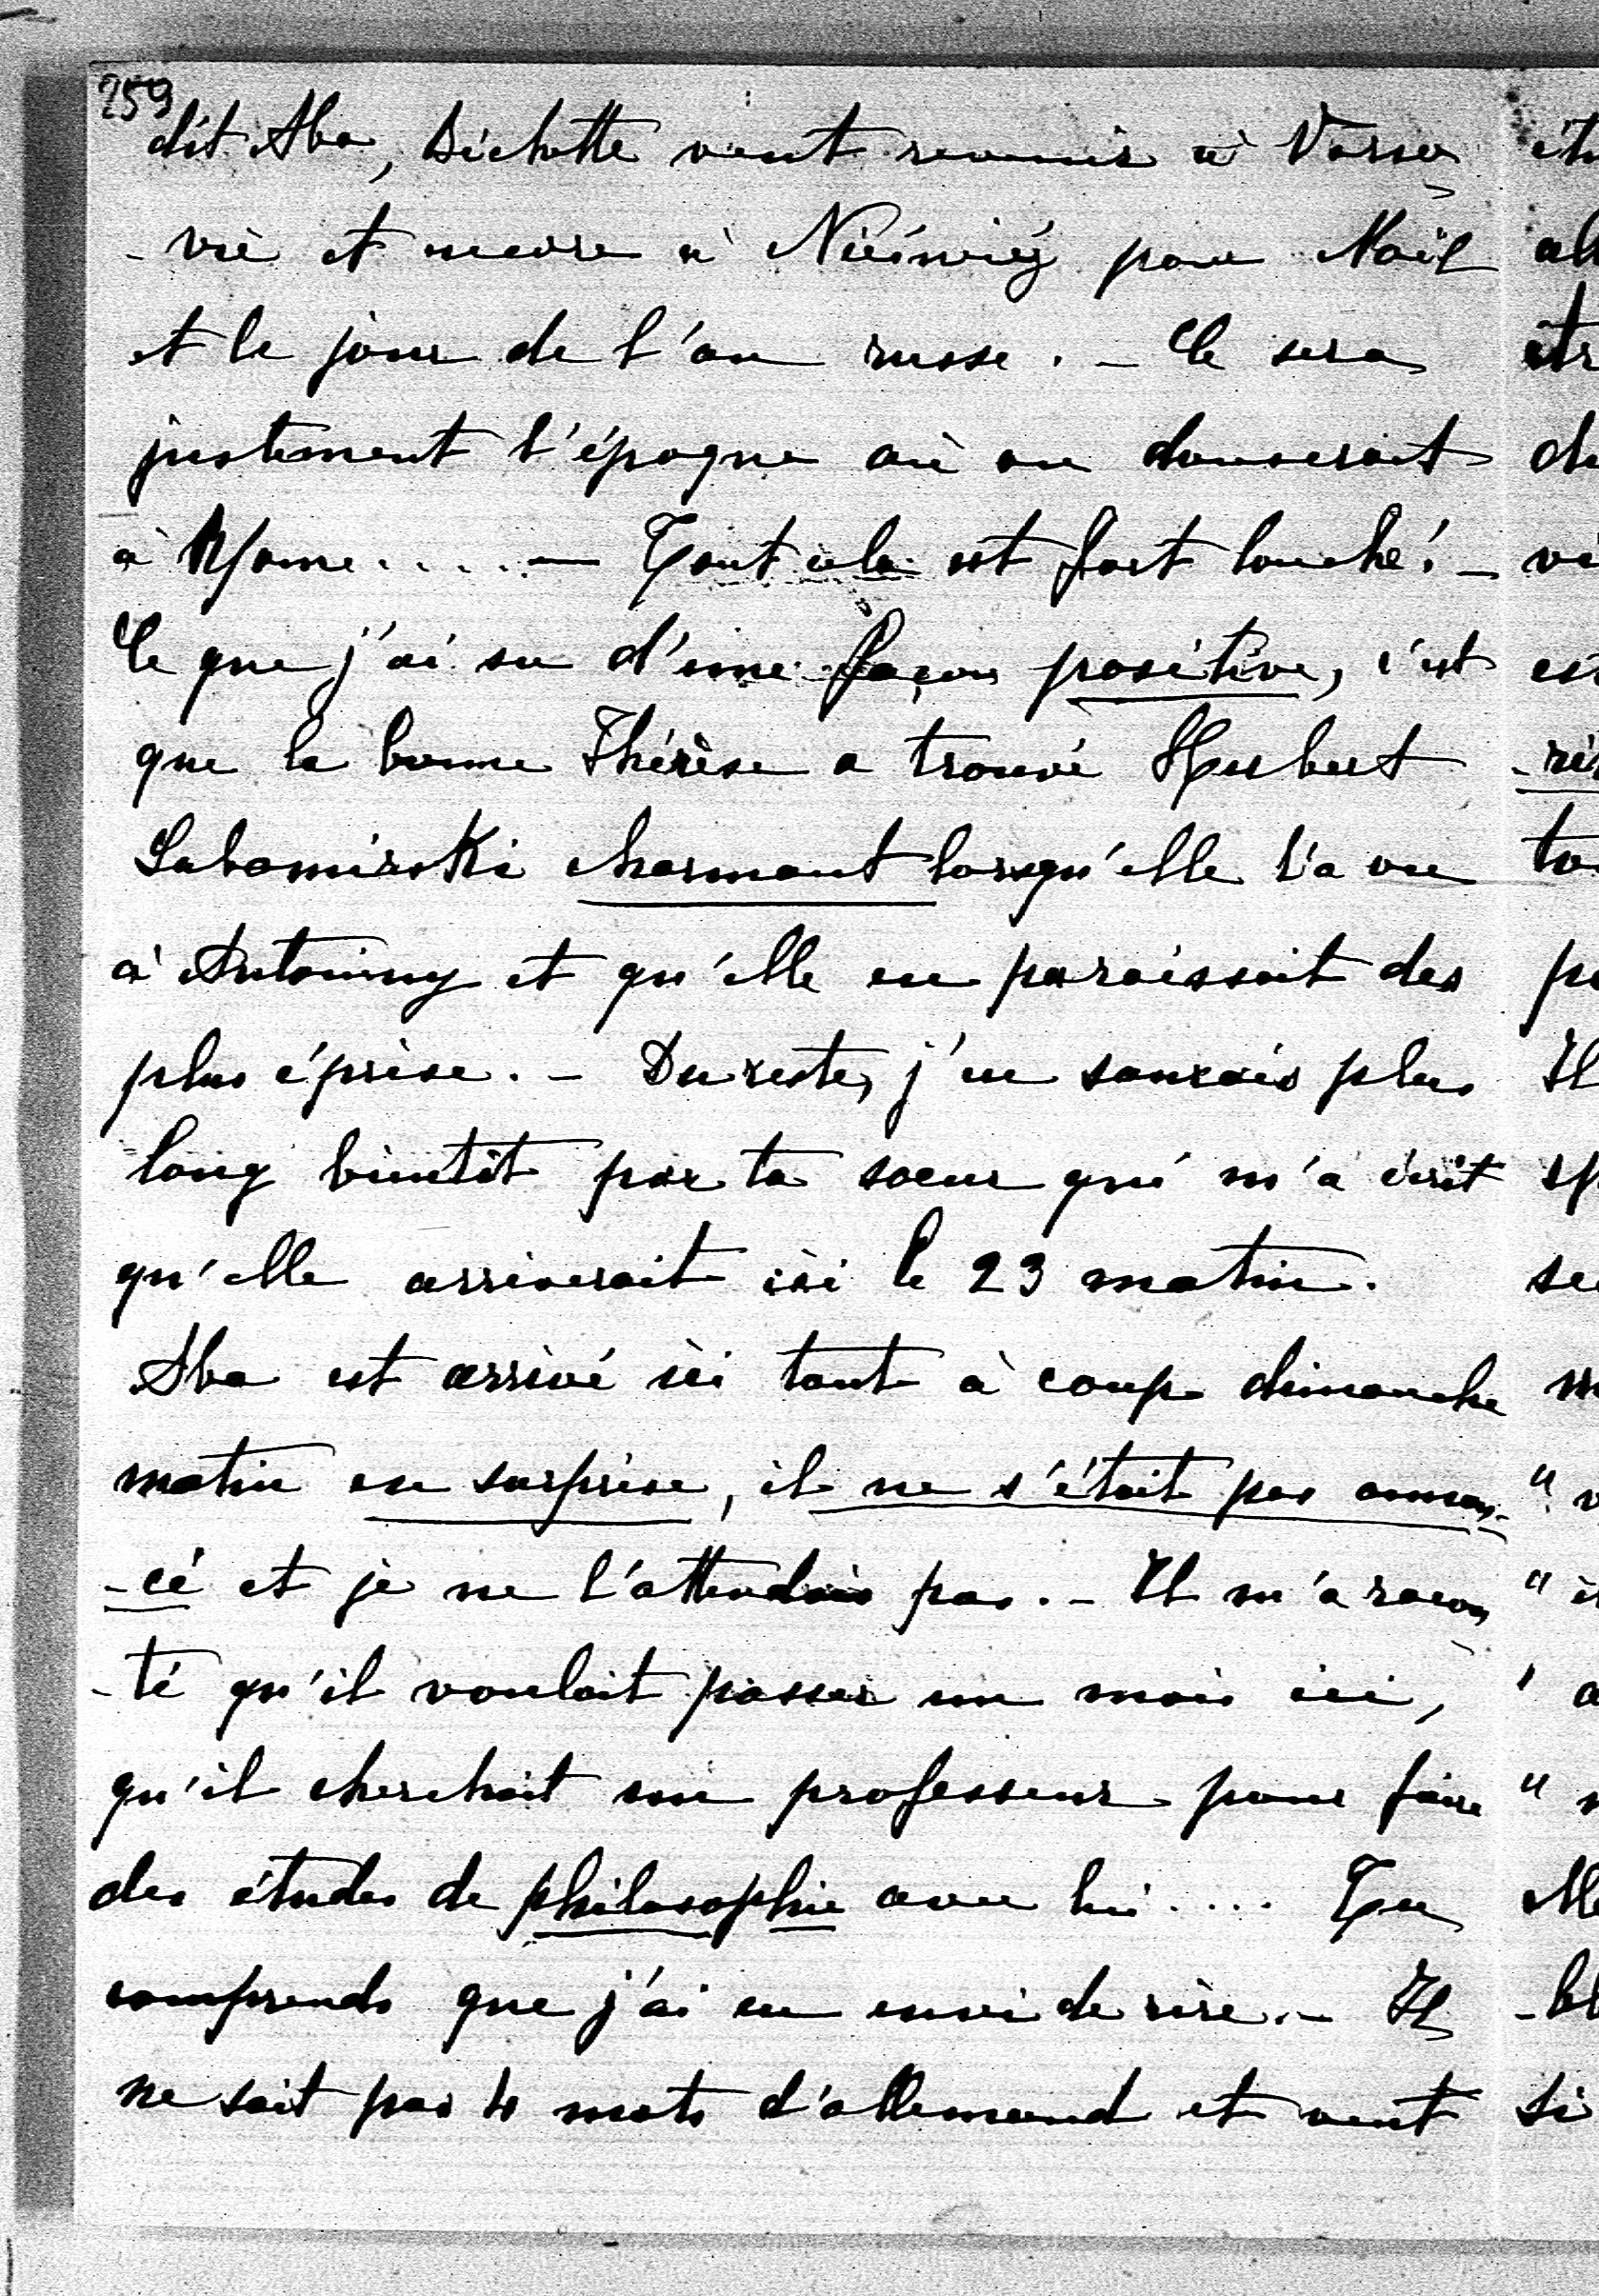 259
dit Aba, Bichette veut revenir à Varso
-vie et encore à Nieśwież pour Noël
et le jour de l'an russe. - Ce sera
justement l'époque où on danserait
à Rome..... — Tout cela est fort louche! -
Ce que j'ai su d'une façon positive, c'est
que la bonne Thérèse a trouvé Hubert
Lubomirski charmant lorsqu'elle l'a vu
à Antoniny et qu'elle en paraissait des
plus éprise. - Du reste, j'en saurais plus
long bientôt par ta soeur qui m'a écrit
qu'elle arriverait ici le 23 matin.
Aba est arrivé ici tout à coup dimanche
matin en surprise, il ne s'était pas annon-
-cé et je ne l'attendais pas. - Il m'a racon
-té qu'il voulait passer un mois ici,
qu'il cherchait un professeur pour faire
des études de philosophie avec lui.... Tu
comprends que j'ai eu envi de rire. - Il
ne sait pas 4 mots d'allemand et veut